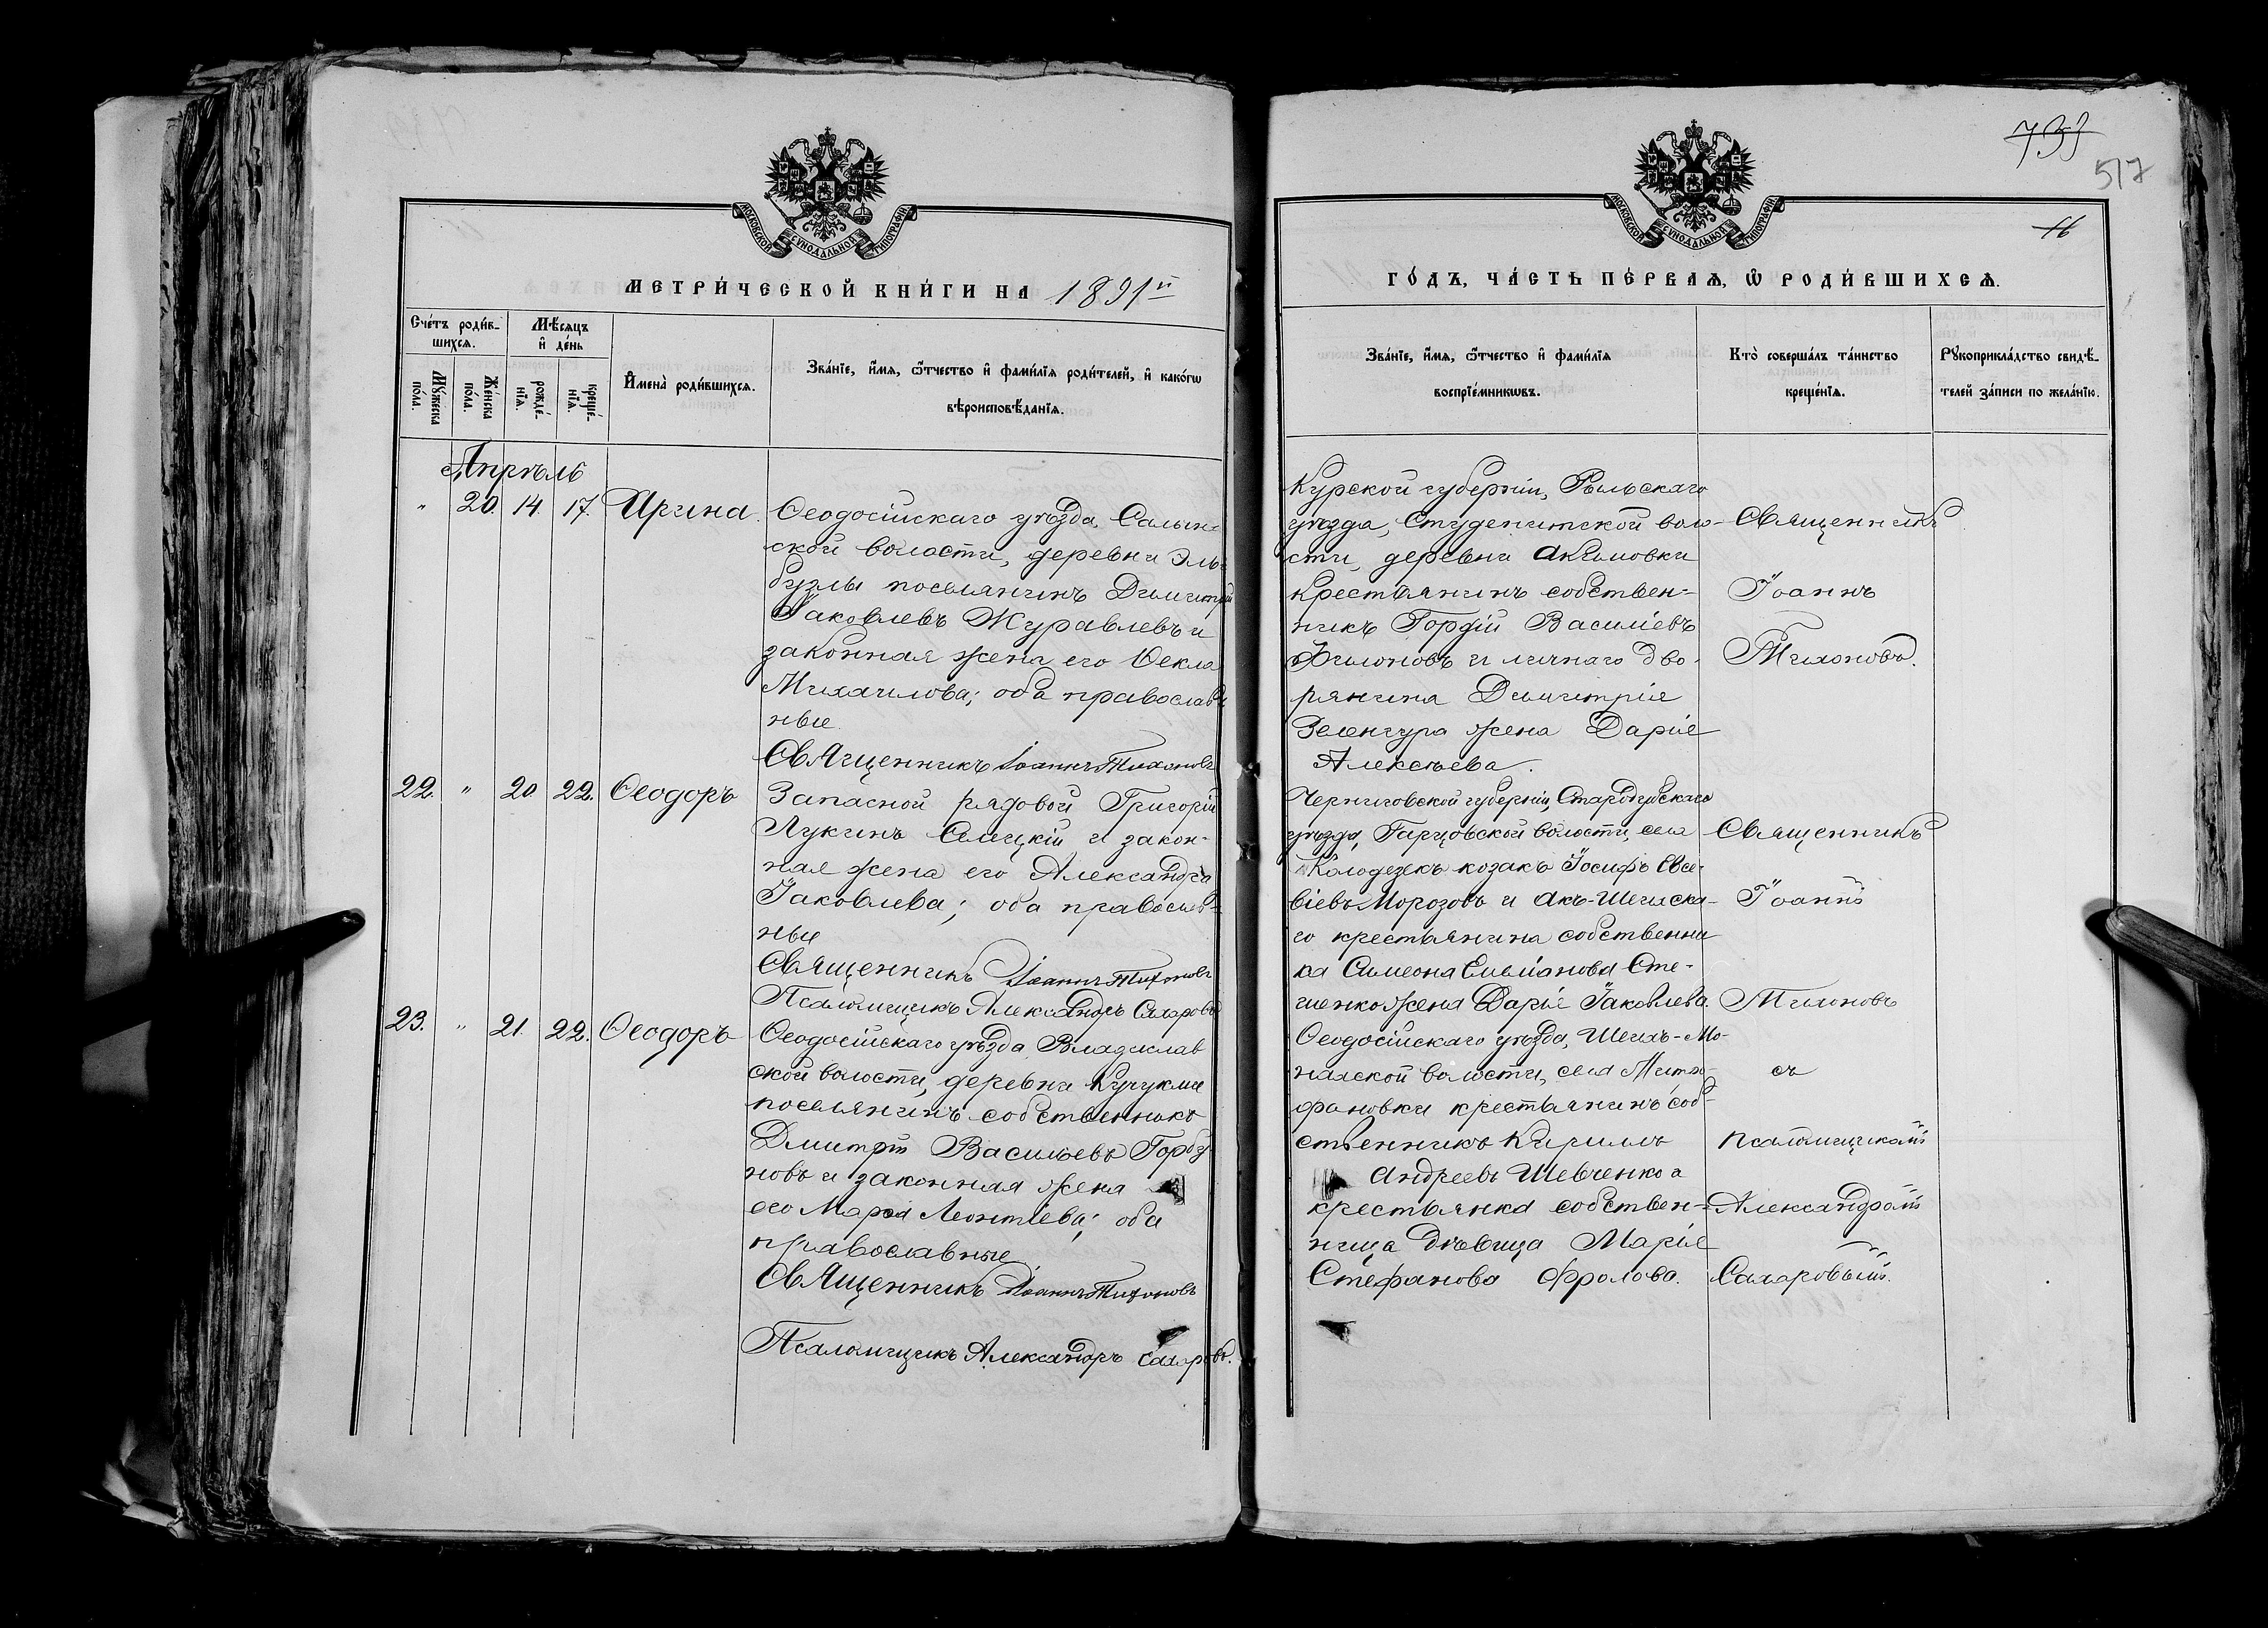 733
517
16
МОСКОВСКОЙ СѴНОДАЛЬНОЙ ТИПОГРАФІИ
МЕТРИ́ЧЕСКОЙ КНИ́ГИ НА 1891й
Сче́тъ роди́в-
шихсѧ.
Мѣ́сѧцъ
и҆ де́нь
Мꙋ́жеска
по́ла.
Же́нска
по́ла.
рожде́-
нїѧ.
креще́-
нїѧ.
И҆мена̀ роди́вшихсѧ.
Зва́нїе, и҆́мѧ, ѻ҆́тчество и҆ фами́лїѧ роди́телей, и҆ како́гѡ
вѣроисповѣ́данїѧ.
Апрѣль
" 20. 14. 17. Ирина.
Ѳеодосійскаго уѣзда, Салын-
ской волости, деревни Эль-
бузлы поселянинъ Димитрій
Іаковлевъ Журавлевъ и
законная жена его Ѳекла
Михаилова; оба православ-
ные
Священникъ Іоаннъ Тихоновъ
22. " 20 22. Ѳеодоръ
Запасной рядовой Григорій
Лукинъ Сѣлицкій и закон-
ная жена его Александра
Іаковлева; оба православ-
ные
Священникъ Іоаннъ Тихоновъ
Псаломщикъ Александръ Сахаровъ
23. " 21. 22. Ѳеодоръ
Ѳеодосійскаго уѣзда, Владислав
ской волости, деревни
поселянинъ собственникъ
Дмитрій Васильевъ
новъ и законная жена
его Марѳа Леонтіева; оба
православные
Священникъ Іоаннъ Тихоновъ
Псаломщикъ Александръ Сахаровъ.
МОСКОВСКОЙ СѴНОДАЛЬНОЙ ТИПОГРАФІИ
ГО́ДЪ, ЧА́СТЬ ПЕ́РВАѦ, Ѽ РОДИ́ВШИХСѦ.
Зва́нїе, и҆́мѧ, ѻ҆́тчество и҆ фами́лїѧ
воспрїе́мникѡвъ.
Кто̀ соверша́лъ та́инство
креще́нїѧ.
Рꙋкоприкла́дство свидѣ́-
телей за́писи по жела́нїю.
Курской губерніи, Рыльскаго
уѣзда, Студенитской воло-
сти, деревни Акимовки
крестьянинъ собствен-
никъ Гордій Василіевъ
Филоновъ и личнаго дво-
рянина Димитрія
Зеленгура жена Дарія
Алексѣева.
Священникъ
Іоаннъ
Тихоновъ.
Черниговской губерніи, Стародубскаго
уѣзда, Гарцовской волости, села
Колодезекъ козакъ Іосифъ Евсе-
віевъ Морозовъ и Акъ-Шеихска-
го крестьянина собственни
ка Симеона Емеліанова Сте-
ценко жена Дарія Іаковлева.
Священникъ
Іоаннъ
Тихоновъ
Ѳеодосійскаго уѣзда, Шеихъ-Мо-
найской волости, села Митро-
фановки крестьянинъ соб-
ственникъ Кириллъ
Андреевъ Шевченко а
крестьянка собствен-
ница дѣвица Марія
Стефанова Фролова.
съ
псаломщикомъ
Александромъ
Сахаровымъ.